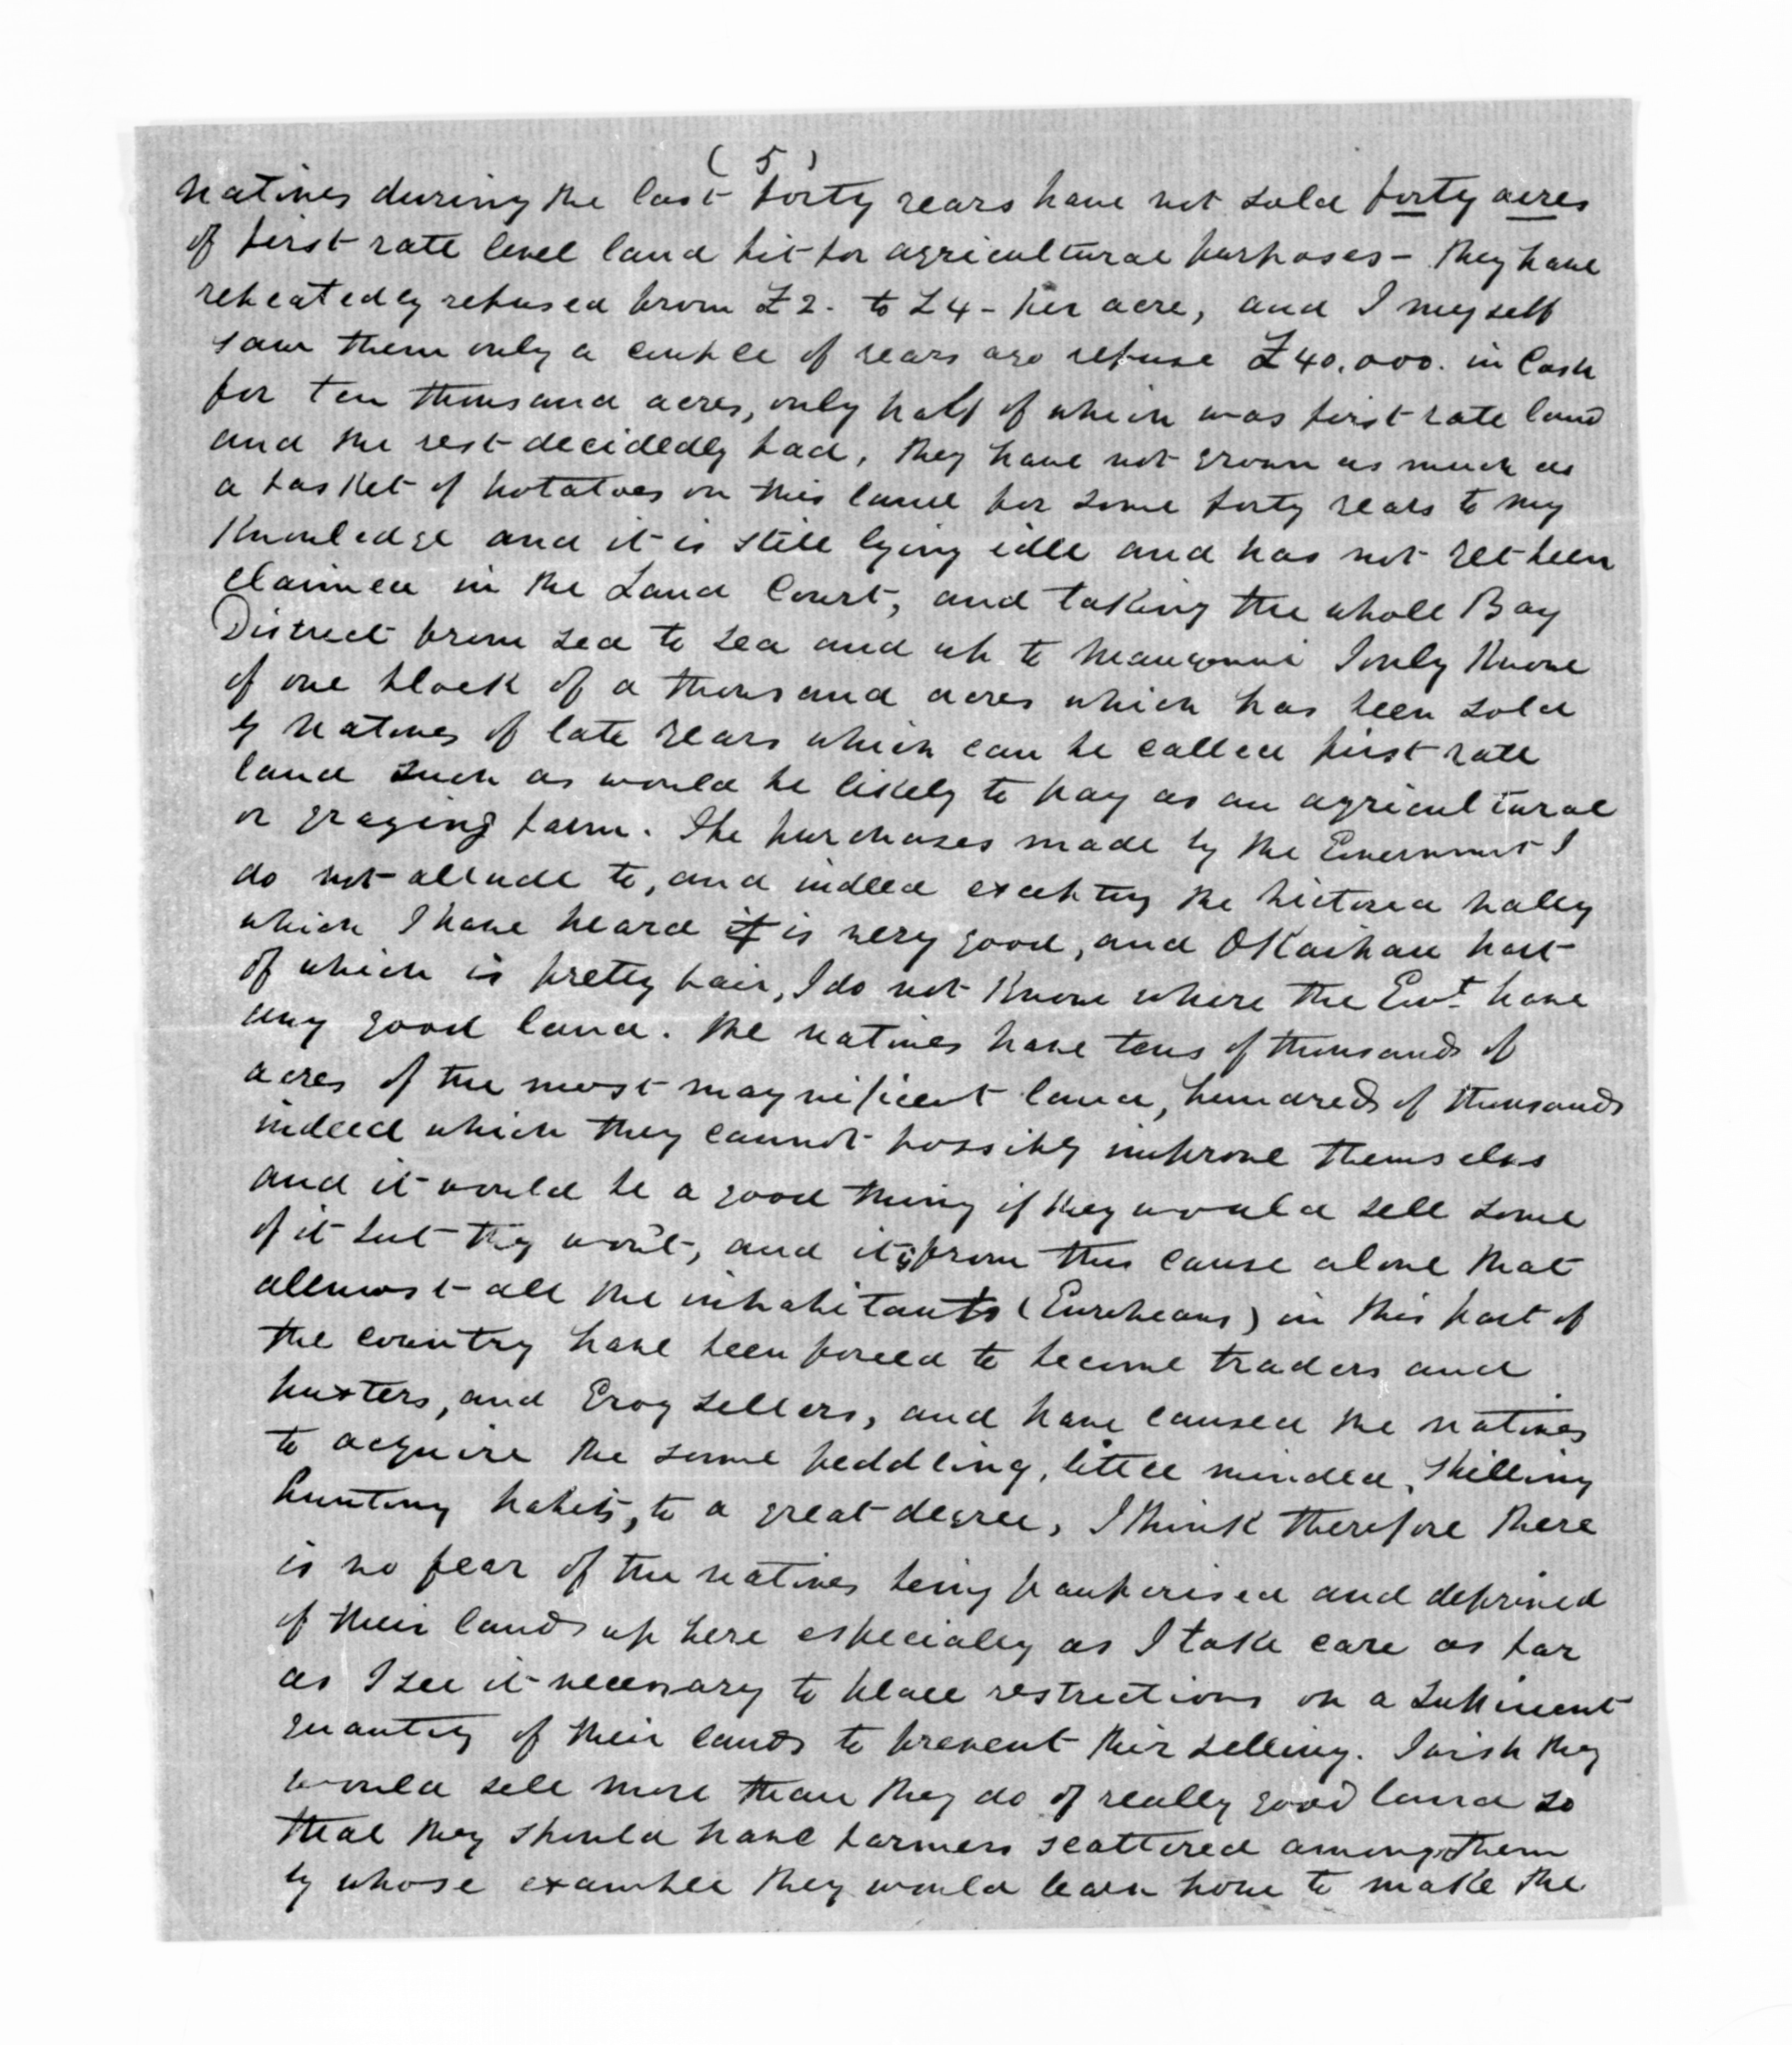 ( 5 )
natives during the last forty years have not sold forty acres
of first rate level land fit for agricultural purposes - they have
repeatedly refused from £2. to £4 - per acre, and I myself
saw them only a couple of years ago refuse £40.000. in Cash
for ten thousand acres, only half of which was first rate land
and the rest decidedly bad, they have not grown as much as
a basket of potatoes on this land for some forty years to my
Knowledge and it is still lying idle and has not yet been
Claimed in the Land Court, and taking the whole Bay
District from sea to sea and up to Mangonui I only Know
of one block of a thousand acres which has been sold
by natives of late years which can be called first rate
land such as would be likely to pay as an agricultural
or grazing farm. The purchases made by the Government I
do not allude to, and indeed excepting the Victoria valey
which I have heard it is very good, and OKaihau part
of which is pretty fair, I do not Know where the Govt have
any good land. the natives have tens of thousands of
acres of the most magnificent land, hundreds of thousands
indeed which they cannot possibly improve themselves
and it would be a good thing if they would sell some
of it but they wont, and it is from this cause alone that
allmost all the inhabitants (Europeans) in this part of
the country have been forced to become traders and
huxters, and Grog sellers, and have caused the natives
to acquire the same peddling, little minded, shilling
hunting habits, to a great degree, I think therefore there
is no fear of the natives being pauperised and deprived
of their lands up here especialy as I take care as far
as I see it necessary to place restrictions on a sufficient
quantity of their lands to prevent their selling. I wish they
would sell more than they do of really good land so
that they should have farmers scattered among them
by whose example they would learn how to make the